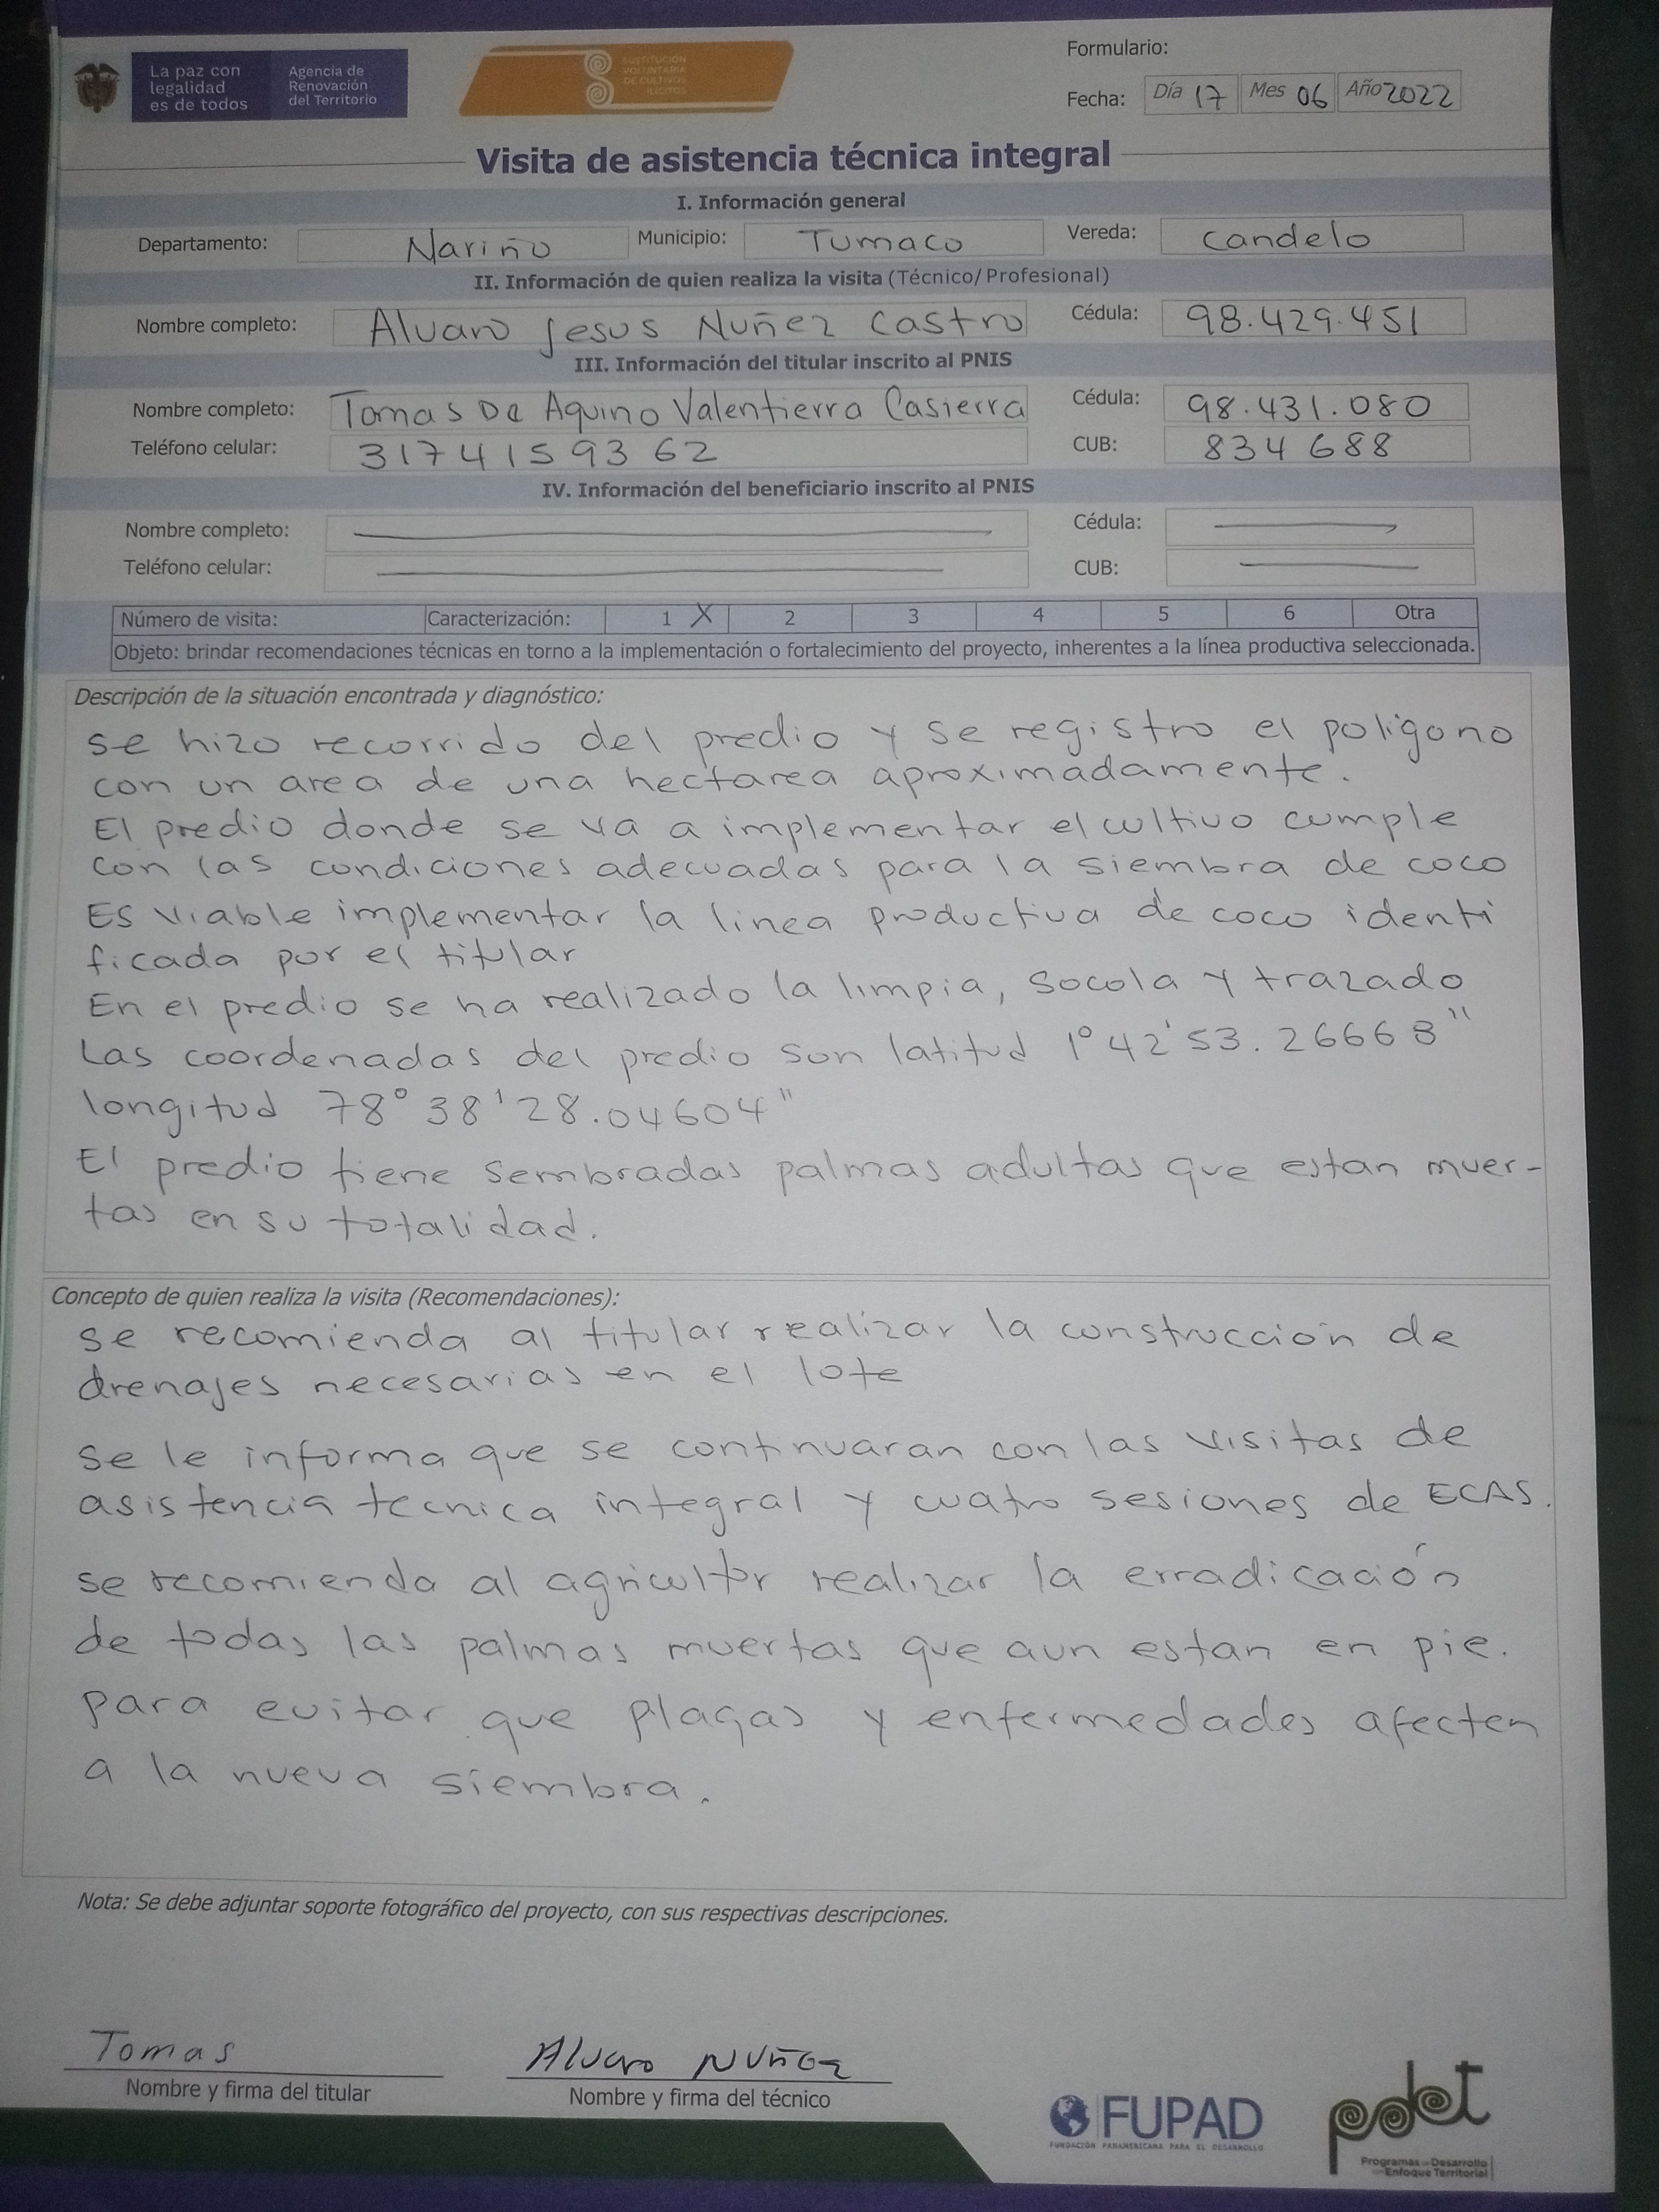 La paz con
legalidad
es de todos
Agencia de
Renovación
del Territorio
SUSTITUCIÓN
VOLUNTARIA
DE CULTIVOS
ILÍCITOS
Formulario:
Fecha: Día 17 Mes 06 Año 2022
Visita de asistencia técnica integral
I. Información general
Departamento: Nariño Municipio: Tumaco Vereda: Candelo
II. Información de quien realiza la visita (Técnico/Profesional)
Nombre completo: Alvaro Jesus Nuñez Castro Cédula: 98.429.451
III. Información del titular inscrito al PNIS
Nombre completo: Tomas De Aquino Valentierra Casierra Cédula: 98.431.080
Teléfono celular: 31741593 62 CUB: 834688
IV. Información del beneficiario inscrito al PNIS
Nombre completo: Cédula:
Teléfono celular: CUB:
Número de visita: Caracterización: 1 X 2 3 4 5 6 Otra
Objeto: brindar recomendaciones técnicas en torno a la implementación o fortalecimiento del proyecto, inherentes a la línea productiva seleccionada.
Descripción de la situación encontrada y diagnóstico:
se hizo recorrido del predio y se registro el poligono
con un area de una hectarea aproximadamente.
El predio donde se va a implementar el cultivo cumple
con las condiciones adecuadas para la siembra de coco
Es viable implementar la linea productiva de coco identi
ficada por el titular
En el predio se ha realizado la limpia, socola y trazado
Las coordenadas del predio son latitud 1° 42' 53. 26668"
longitud 78° 38' 28.04604"
El predio tiene sembradas palmas adultas que estan muer-
tas en su totalidad.
Concepto de quien realiza la visita (Recomendaciones):
se recomienda al titular realizar la construcción de
drenajes necesarias en el lote
se le informa que se continuaran con las visitas de
asistencia tecnica integral y cuatro sesiones de ECAS.
se recomienda al agricultor realizar la erradicación
de todas las palmas muertas que aun estan en pie.
para evitar que plagas y enfermedades afecten
a la nueva siembra.
Nota: Se debe adjuntar soporte fotográfico del proyecto, con sus respectivas descripciones.
Tomas
Nombre y firma del titular
Alvaro Nuñez
Nombre y firma del técnico
FUPAD
FUNDACIÓN PANAMERICANA PARA EL DESARROLLO
pdet
Programas de Desarrollo
con Enfoque Territorial